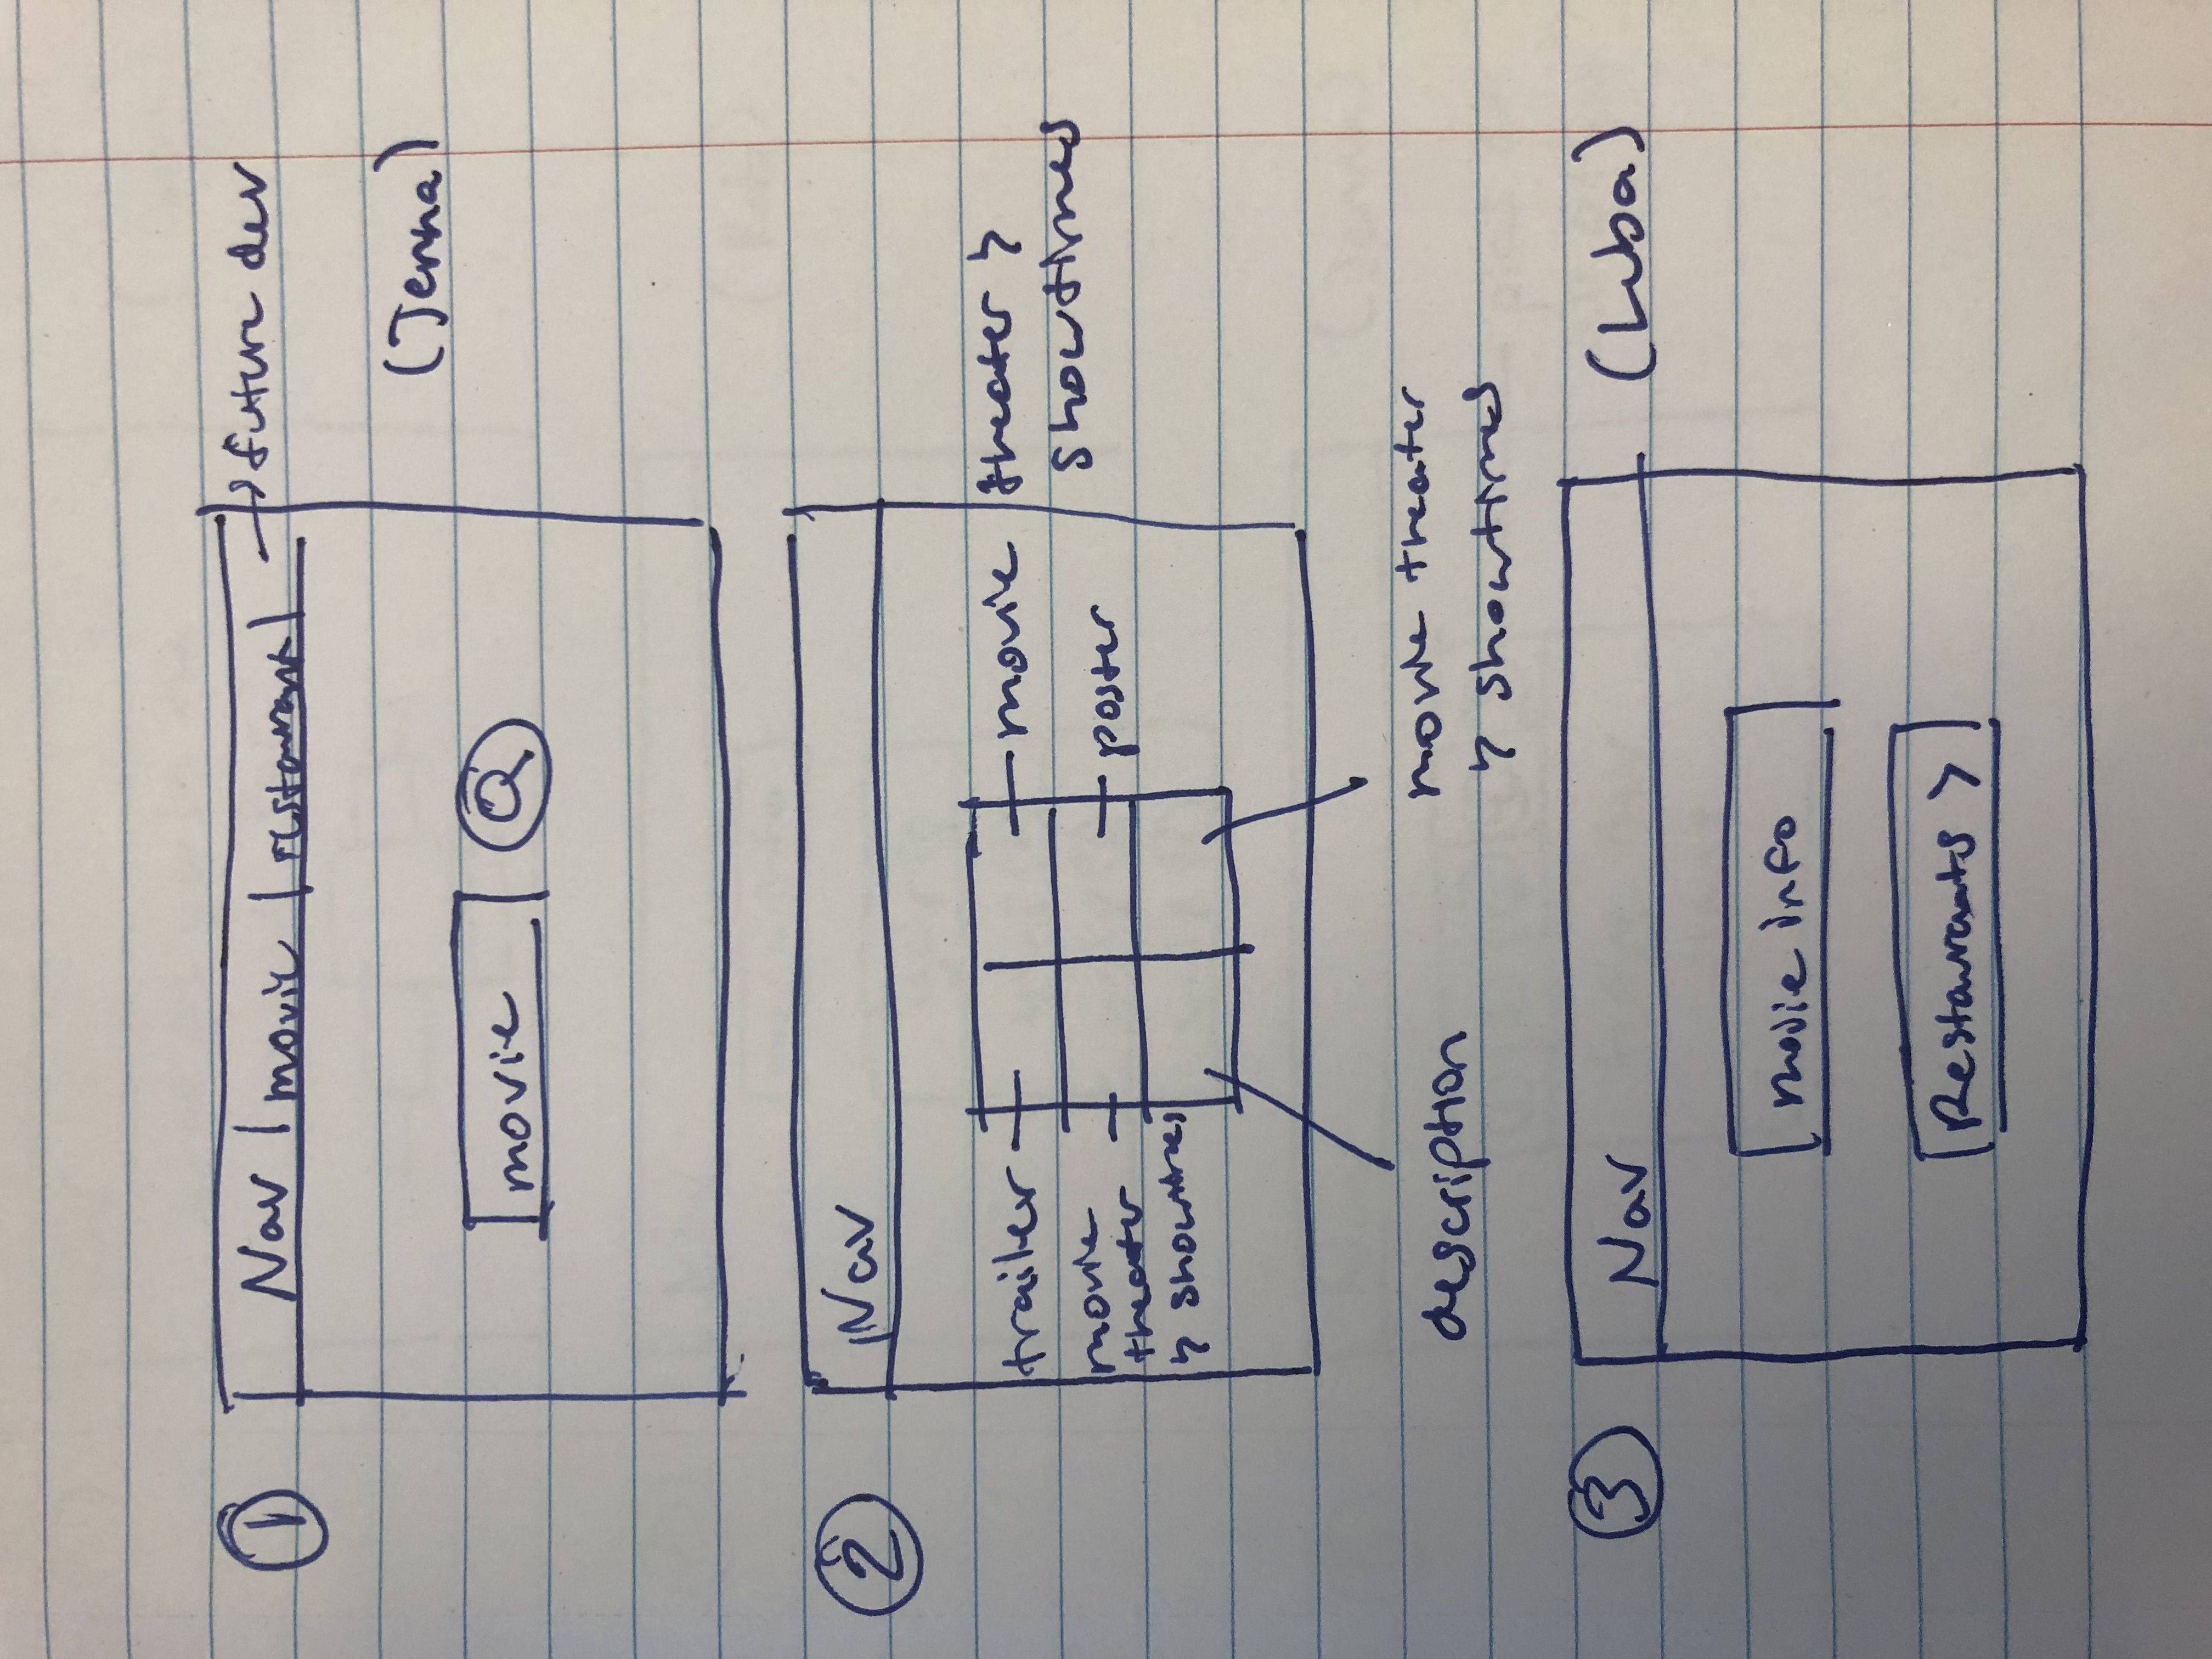 1
Nav | movie | restaurant | → future dev
(Jenna)
movie Q
2
Nav
trailer
movie
theater &
showtimes
movie
theater &
showtimes
poster
description
movie theater
& showtimes
3
Nav
(Luba)
movie info
Restaurants >